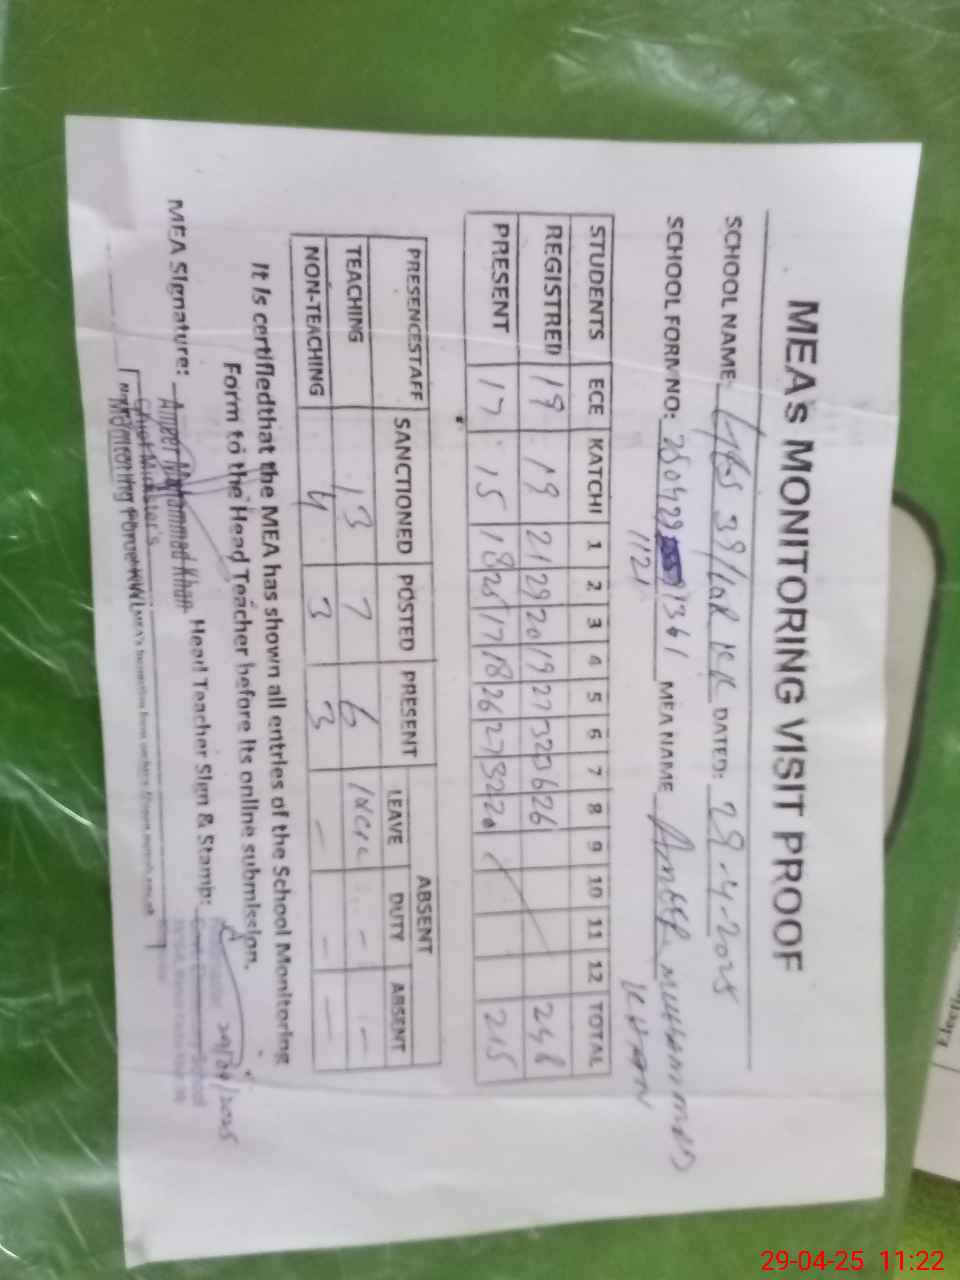 MEA's MONITORING VISIT PROOF
SCHOOL NAME: 39/10R DATED: 29-4-2025
SCHOOL FORM NO: 250429 1361 MEA NAME Ameer Muhammad
1121 KHAN
STUDENTS ECE KATCHI 1 2 3 4 5 6 7 8 9 10 11 12 TOTAL
REGISTRED 19 19 21 29 20 19 27 32 36 26 248
PRESENT 17 15 18 25 17 18 26 27 32 20 215
PRESENCESTAFF SANCTIONED POSTED PRESENT ABSENT
LEAVE DUTY ABSENT
TEACHING 13 7 6 - -
NON-TEACHING 4 3 3 - - -
It is certifiedthat the MEA has shown all entries of the School Monitoring
Form to the Head Teacher before its online submission.
MEA Signature: Ameer Muhammad Khan Head Teacher Sign & Stamp: 29/04/2025
Chief Minister's
Monitoring Force KWL
29-04-25 11:22